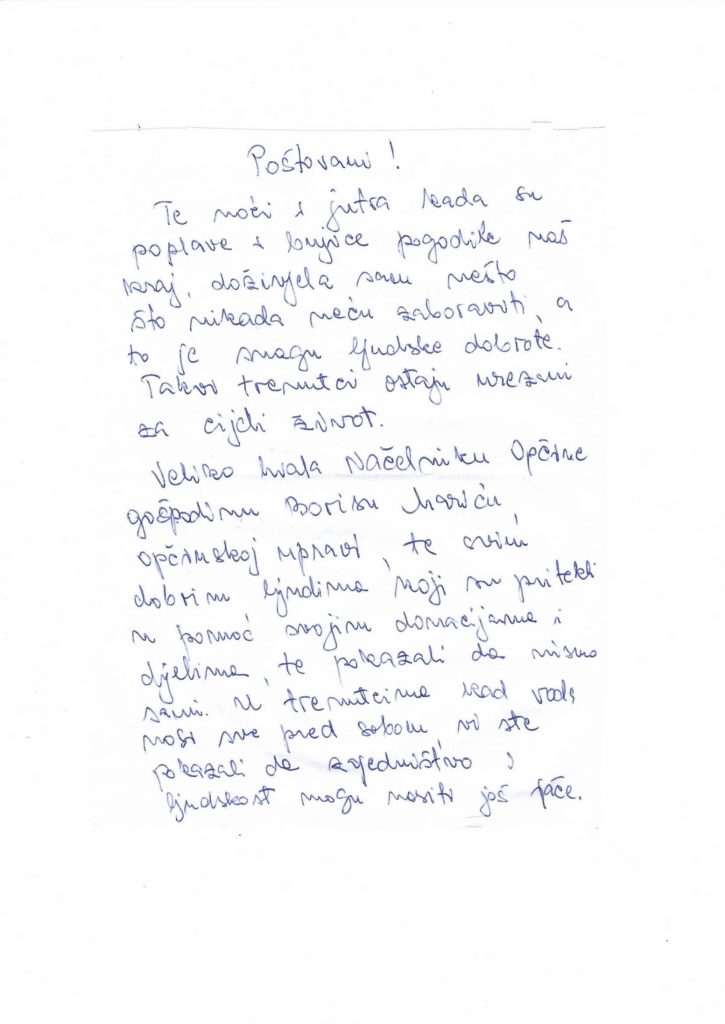 Poštovani !
Te noći i jutra kada su
poplave i bujice pogodile naš
kraj, doživjela sam nešto
što nikada neću zaboraviti, a
to je snagu ljudske dobrote.
Takvi trenutci ostaju urezani
za cijeli život.
Veliko hvala Načelniku Općine
gospodinu Borisu
općinskoj upravi, te svim
dobrim ljudima koji su pritekli
u pomoć svojim donacijama i
djelima, te pokazali da nismo
sami. U trenutcima kad voda
nosi sve pred sobom, vi ste
pokazali da zajedništvo i
ljudskost mogu nositi još jače.